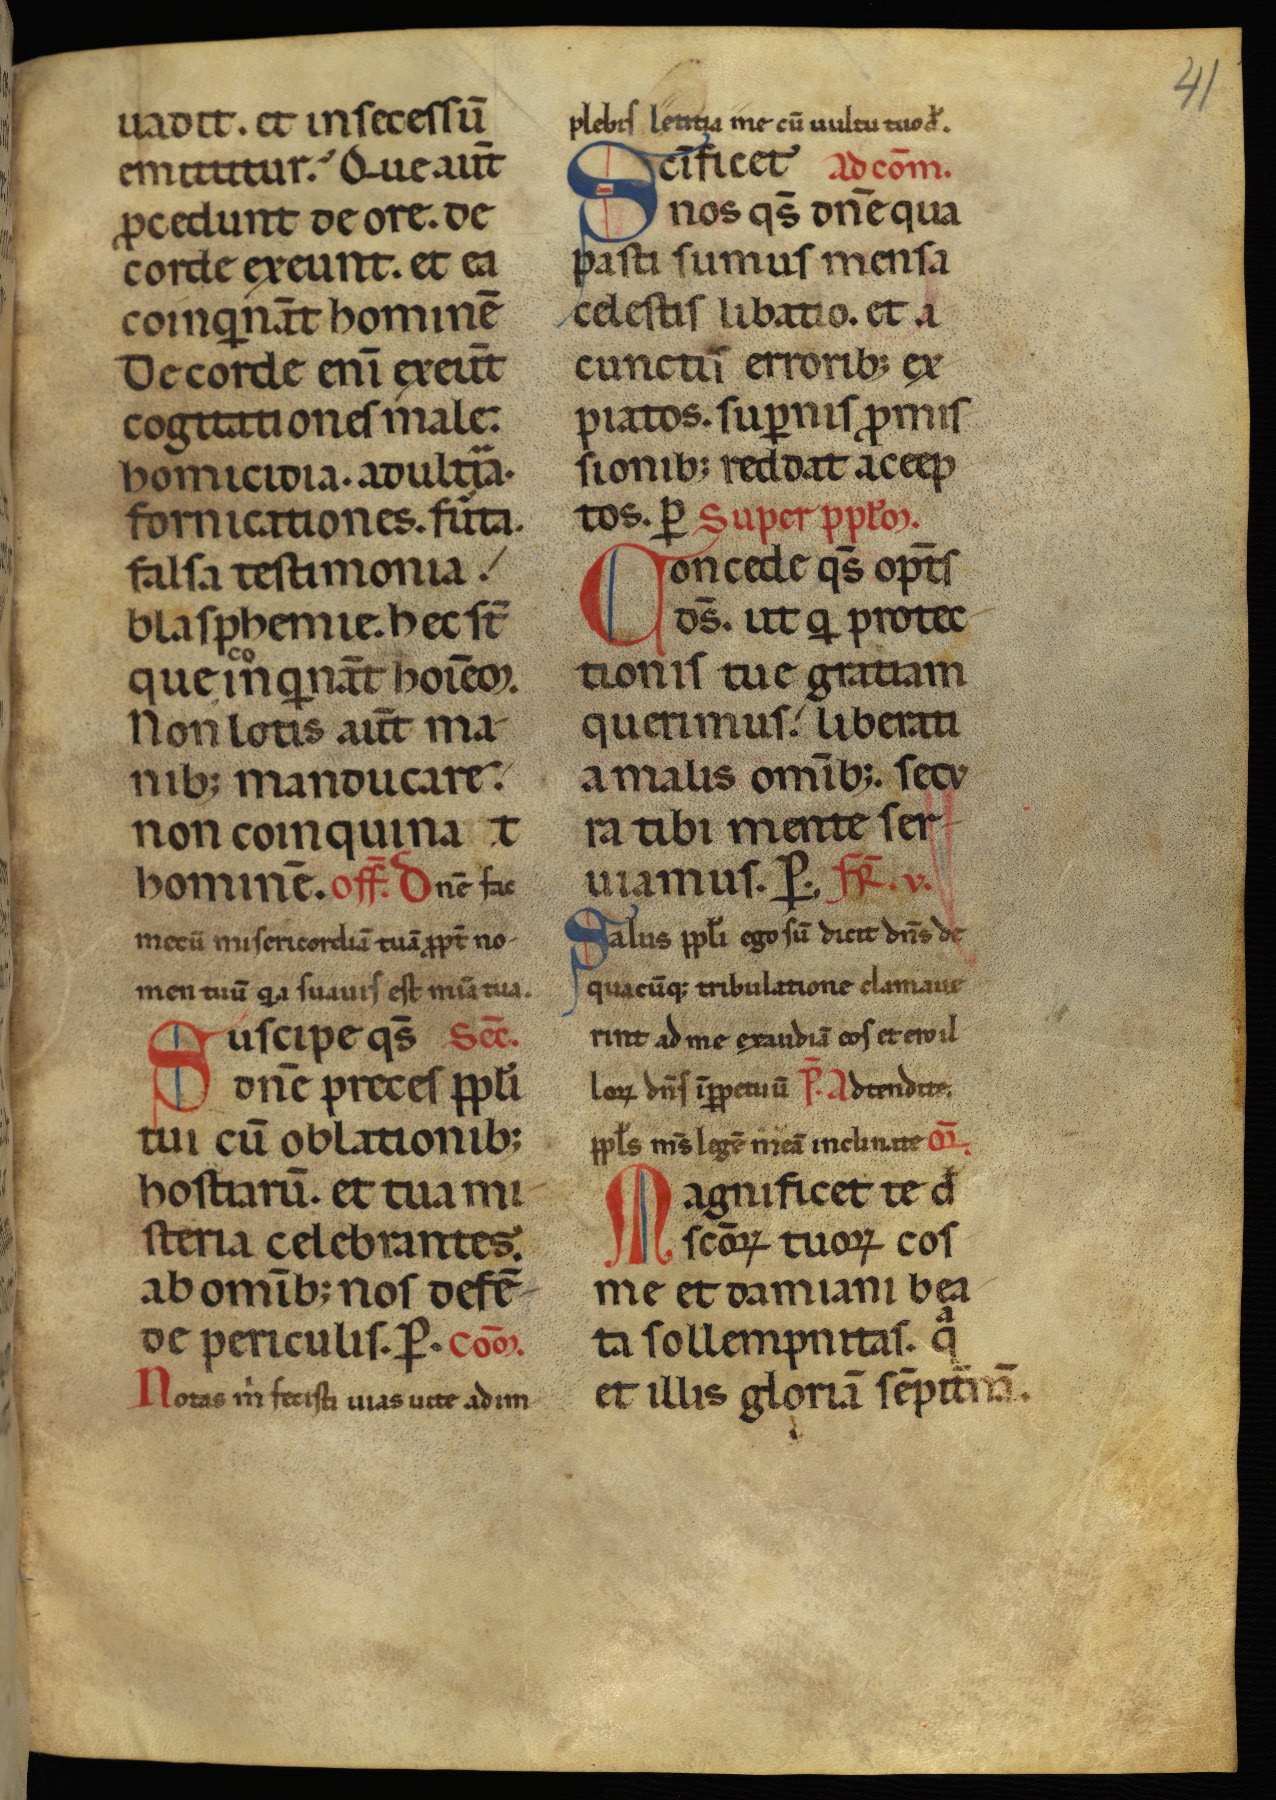 41
uadit. et insecessū
emittitur. Que aut̄
ꝓcedunt de ore. de
corde exeunt. et ea
coinq̇nāt hominē
De corde eni̅ exeūt
cogitationes male.
homicidia. adult̄ia.
fornicationes. fūta.
falsa testimonia.
blasphemie. hec st̄
que coinq̇nāt hoiēm.
Non lotis aut̄ ma
nib; manducare.
non coinquina t
hominē. off̄. Dn̄e fac
mecū misericordiā tuā ꝓpt̄ no
men tuū q̇a suauis est mīa tua.
Suscipe qs̄ Sec̄.
dn̄e preces ppl̄i
tui cū oblationib;
hostiarū. et tua mi
steria celebrantes.
ab om̄ib; nos defē
de periculis. P̄. com̄.
Notas m̄ fecisti uias uite adim
plebis letitia me cū uultu tuo d̄.
Sc̄ificet Ad com̄.
nos qs̄ dn̄e qua
pasti sumus mensa
celestis libatio. et a
cunctis errorib; ex
piatos. sup̄nis ꝓmis
sionib; reddat accep
tos. P̄ Super ppl̄m.
Concede qs̄ op̄ts
ds̄. ut q̇ protec
tionis tue gratiam
querimus. liberati
a malis om̄ib;. secu
ra tibi mente ser
uiamus. P̄. fr̄. v.
Salus ppl̄i ego sū dicit dn̄s de
quacūq; tribulatione clamaue
rint ad me exaudiā eos et ero il
loꝝ dn̄s īꝑpetuū P̄. Adtendite.
ppl̄s ms̄ legē meā inclinate Or̄.
Magnificet te d̄
sc̄oꝝ tuoꝝ cos
me et damiani bea
ta sollempnitas. qᵃ
et illis gloriā sēpit̄nā.